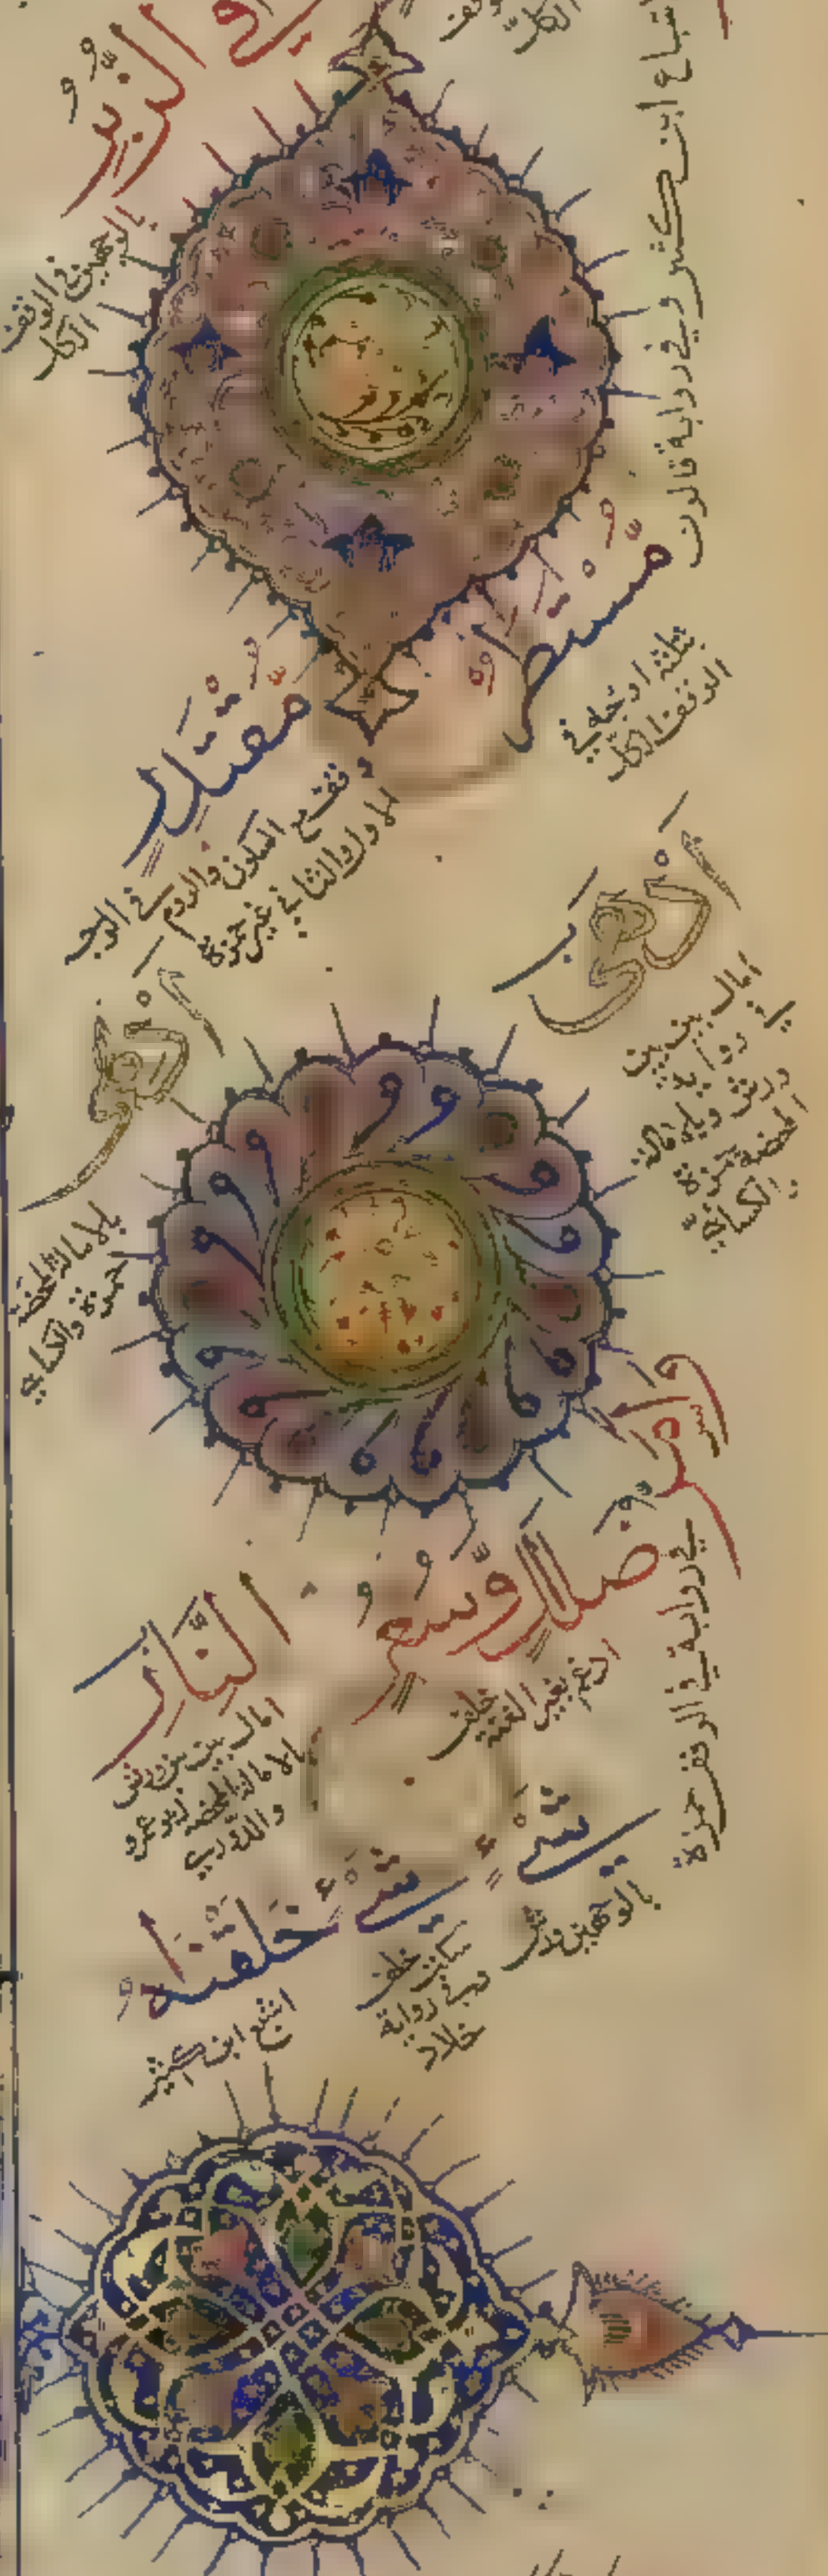 في الزبر
بالوجهين في الوقف
الكل
اشباع ابن كثير وفي رواية قالون
مستطر
بثلثة اوجه في
الوقف الكل
مقتدر
وقف مع السكون والروم في الوجه
الاول والثاني غير حمزة
أدهى
امال بين بين
في رواية
ورش وبلا مالة
المحضة حمزة
والكسائي
أدهى
بالامالة المحضة
حمزة والكسائي
ضلال وسعر
ادغم بغير الغنة خلف
في رواية في الوقف حمزة
النار
امال بين بين ورش
بالامالة المحضة ابو عمرو
والدوري
شيء
بالوجهين ورش
شيء
سكت خلف
وفي رواية
خلاد
خلقنه
اشبع ابن كثير